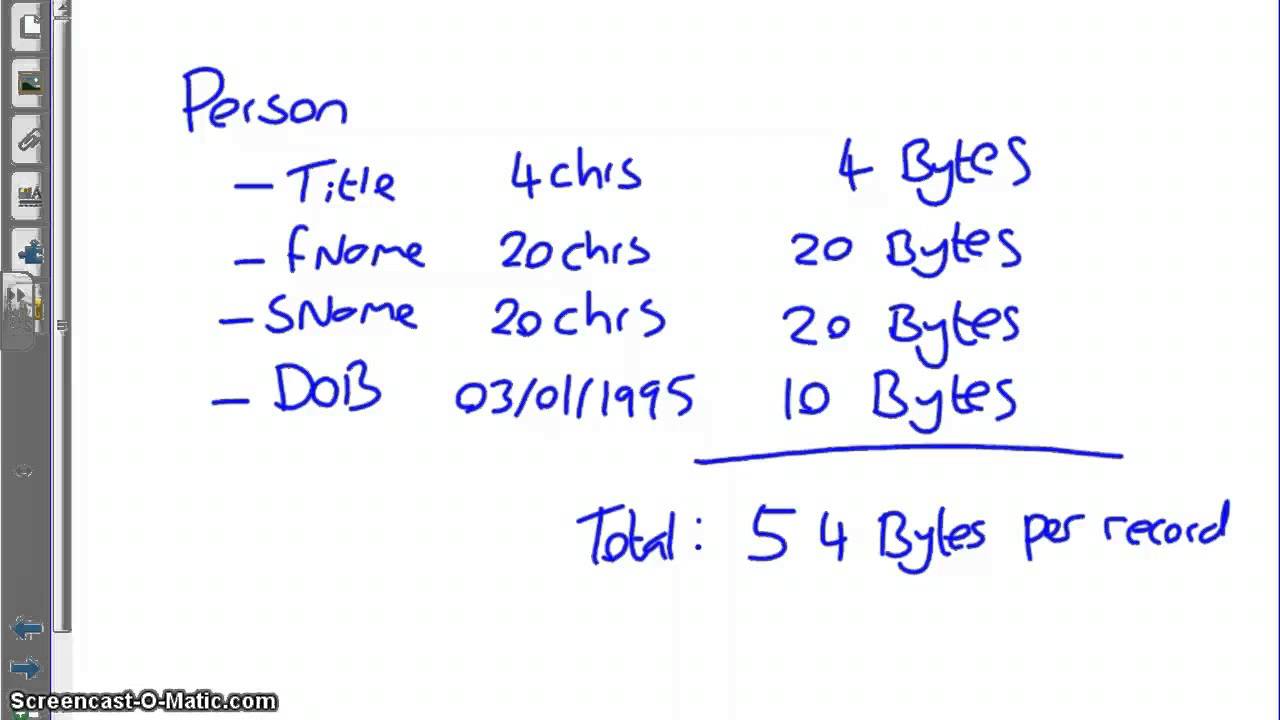 Person
– Title 4 chrs 4 Bytes
– fName 20 chrs 20 Bytes
– SName 20 chrs 20 Bytes
– DoB 03/01/1995 10 Bytes
Total: 54 Bytes per record
Screencast-O-Matic.com